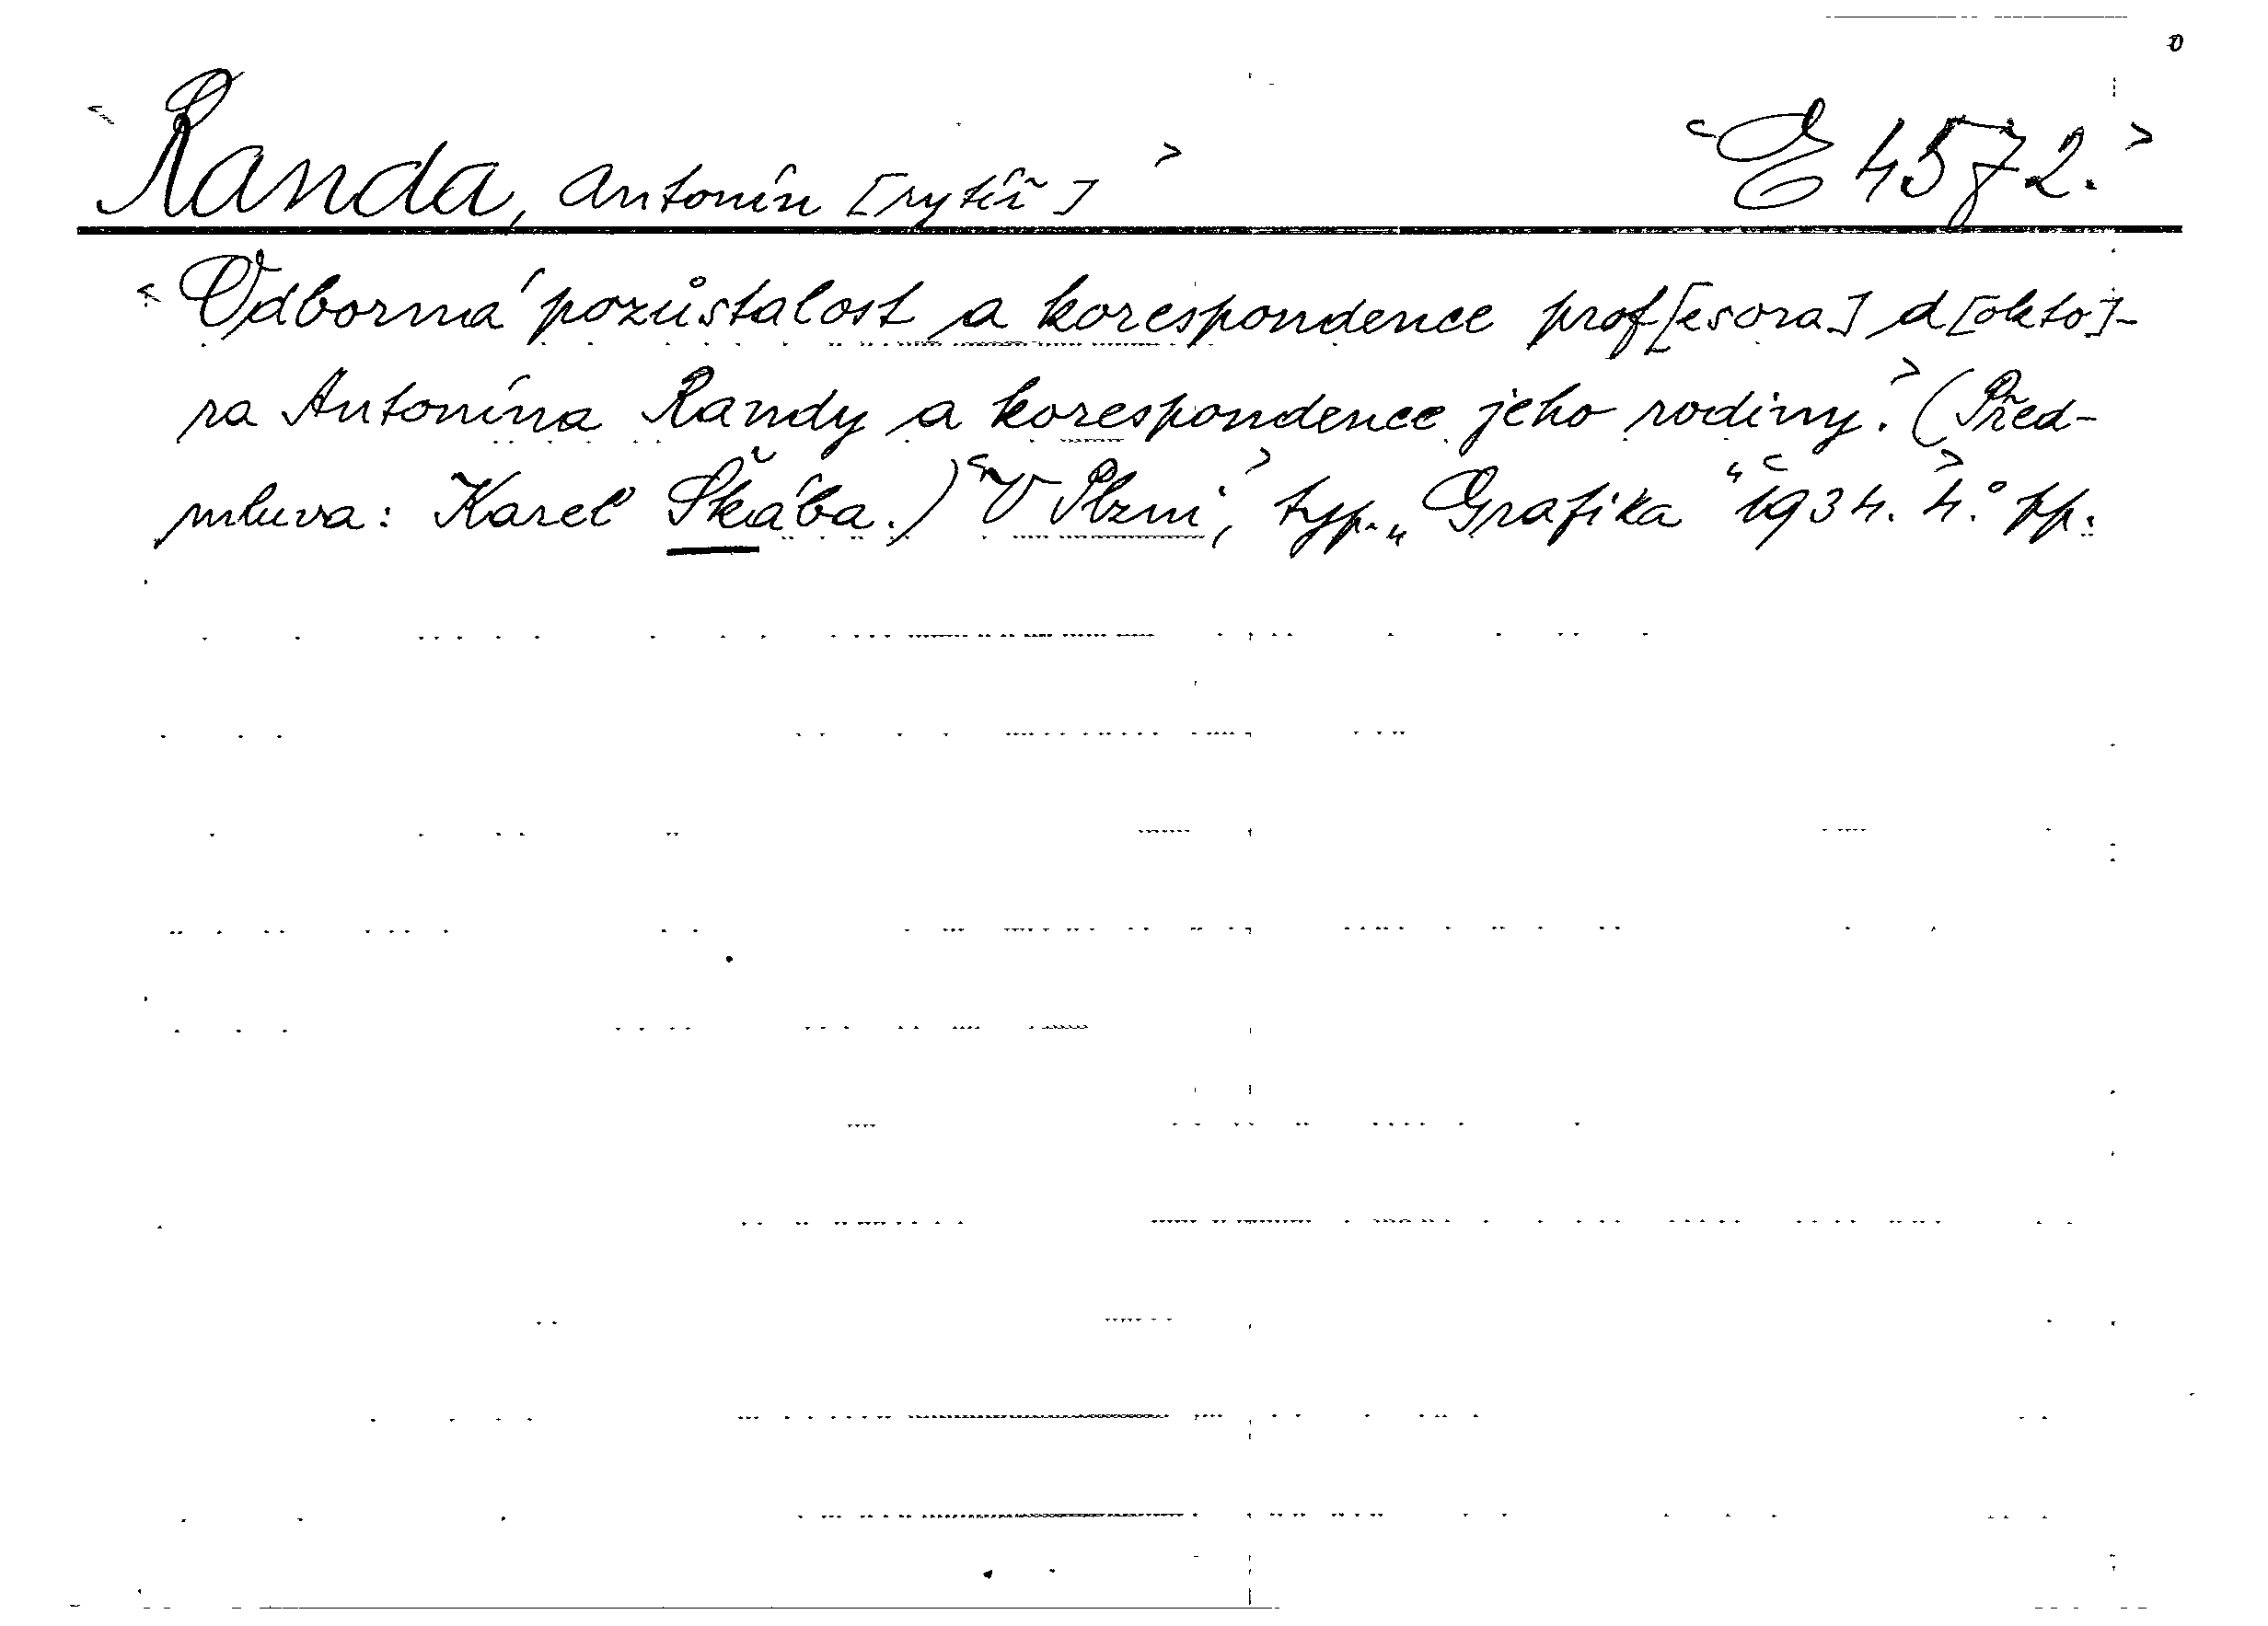 <Randa, Antonín [rytíř]> <E 4572.>
<Odborná pozůstalost a korespondence prof[esora] d[okto]-
ra Antonína Randy a korespondence jeho rodiny.> (Před-
mluva: Karel Škába.) <V Plzni,> typ. „Grafika“ <1934. 4.°> pp.